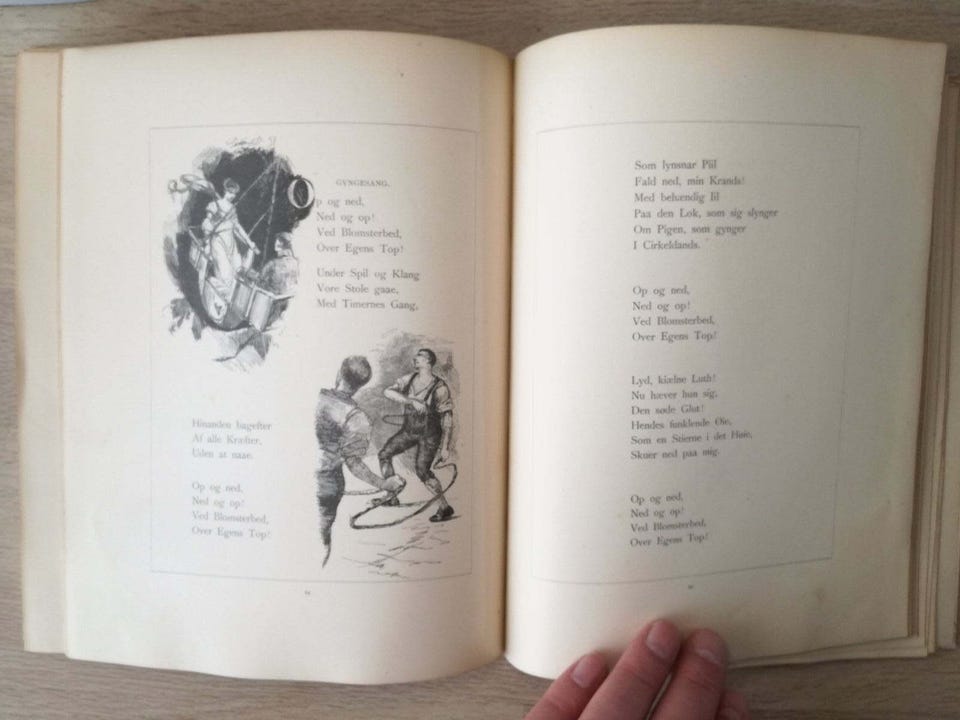 GYNGESANG.
Op og ned,
Ned og op!
Ved Blomsterbed,
Over Egens Top!
Under Spil og Klang
Vore Stole gaae,
Med Timernes Gang,
Hinanden bagefter
Af alle Kræfter,
Uden at naae.
Op og ned,
Ned og op!
Ved Blomsterbed,
Over Egens Top!
Som lynsnar Piil
Fald ned, min Krands!
Med behændig Iil
Paa den Lok, som sig slynger
Om Pigen, som gynger
I Cirkeldands.
Op og ned,
Ned og op!
Ved Blomsterbed,
Over Egens Top!
Lyd, kiælne Luth!
Nu hæver hun sig,
Den søde Glut!
Hendes funklende Øie,
Som en Stierne i det Høie,
Skuer ned paa mig.
Op og ned,
Ned og op!
Ved Blomsterbed,
Over Egens Top!